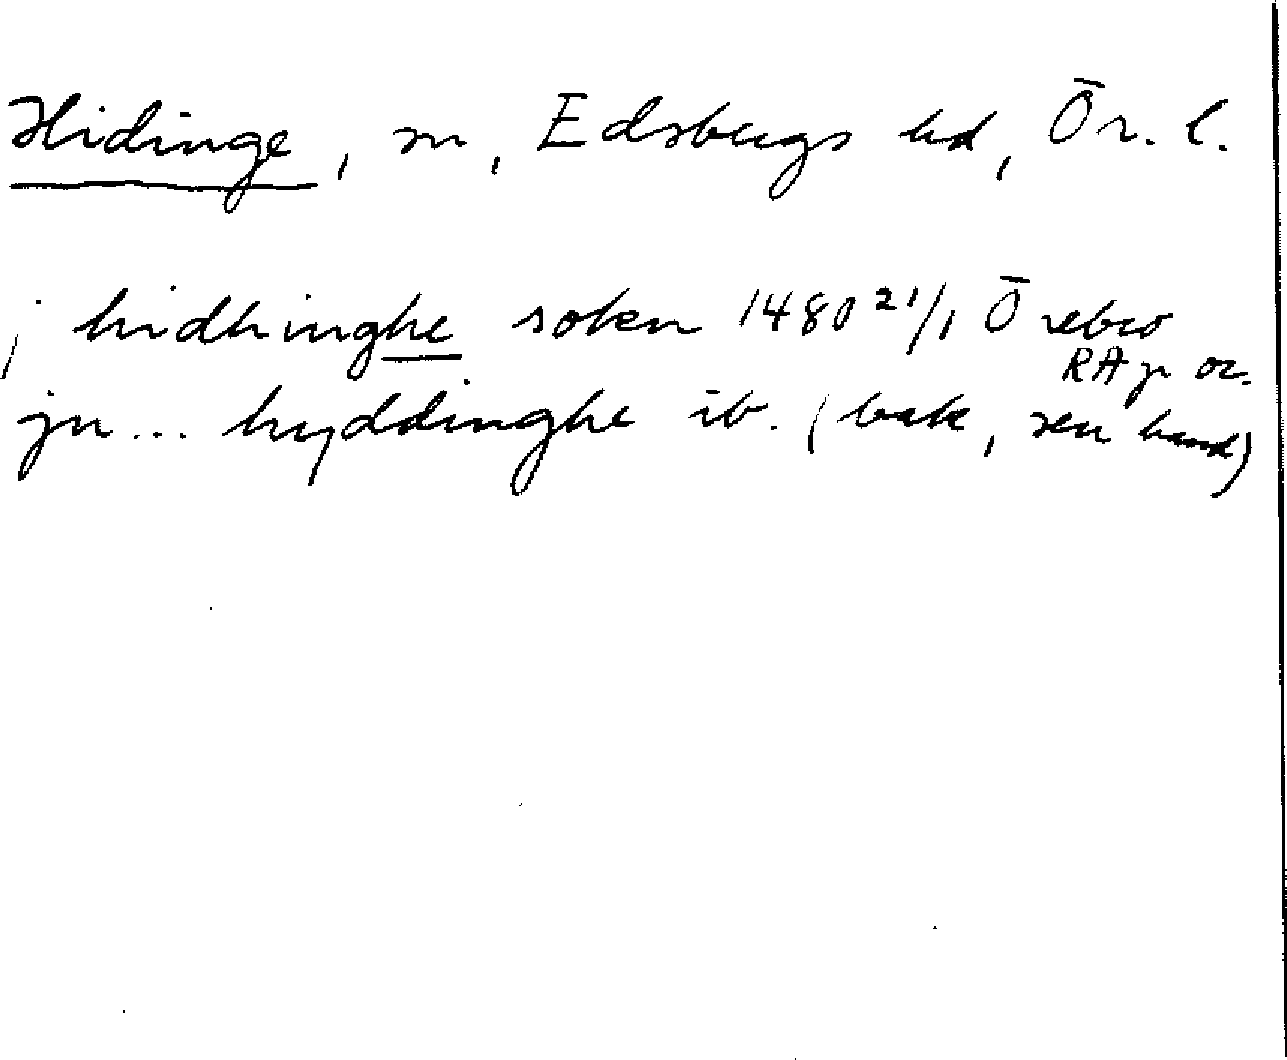 Hidinge, sn, Edsbergs hd, Ör. l.
j hidhinghe soken 1480 21/1 Örebro
RA p or.
jn ... hyddinghe ib. (bak, sen hand)